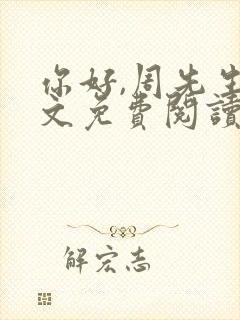 你好,周先生
文免費閱讀
解宏志